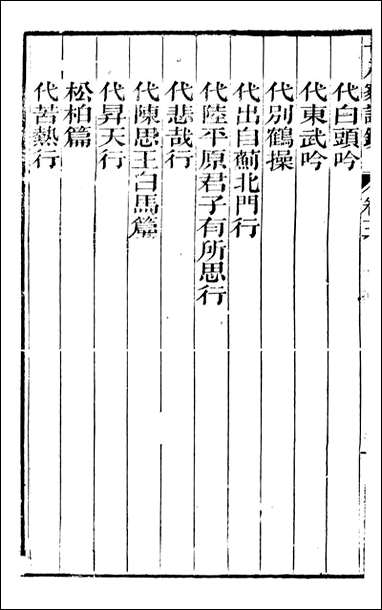 代白頭吟
代東武吟
代別鶴操
代出自薊北門行
代陸平原君子有所思行
代悲哉行
代陳思王白馬篇
代昇天行
松柏篇
代苦熱行